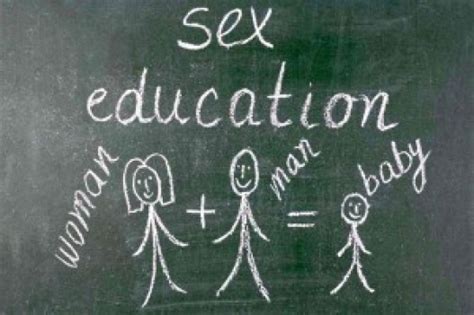 sex
education
woman + man = baby